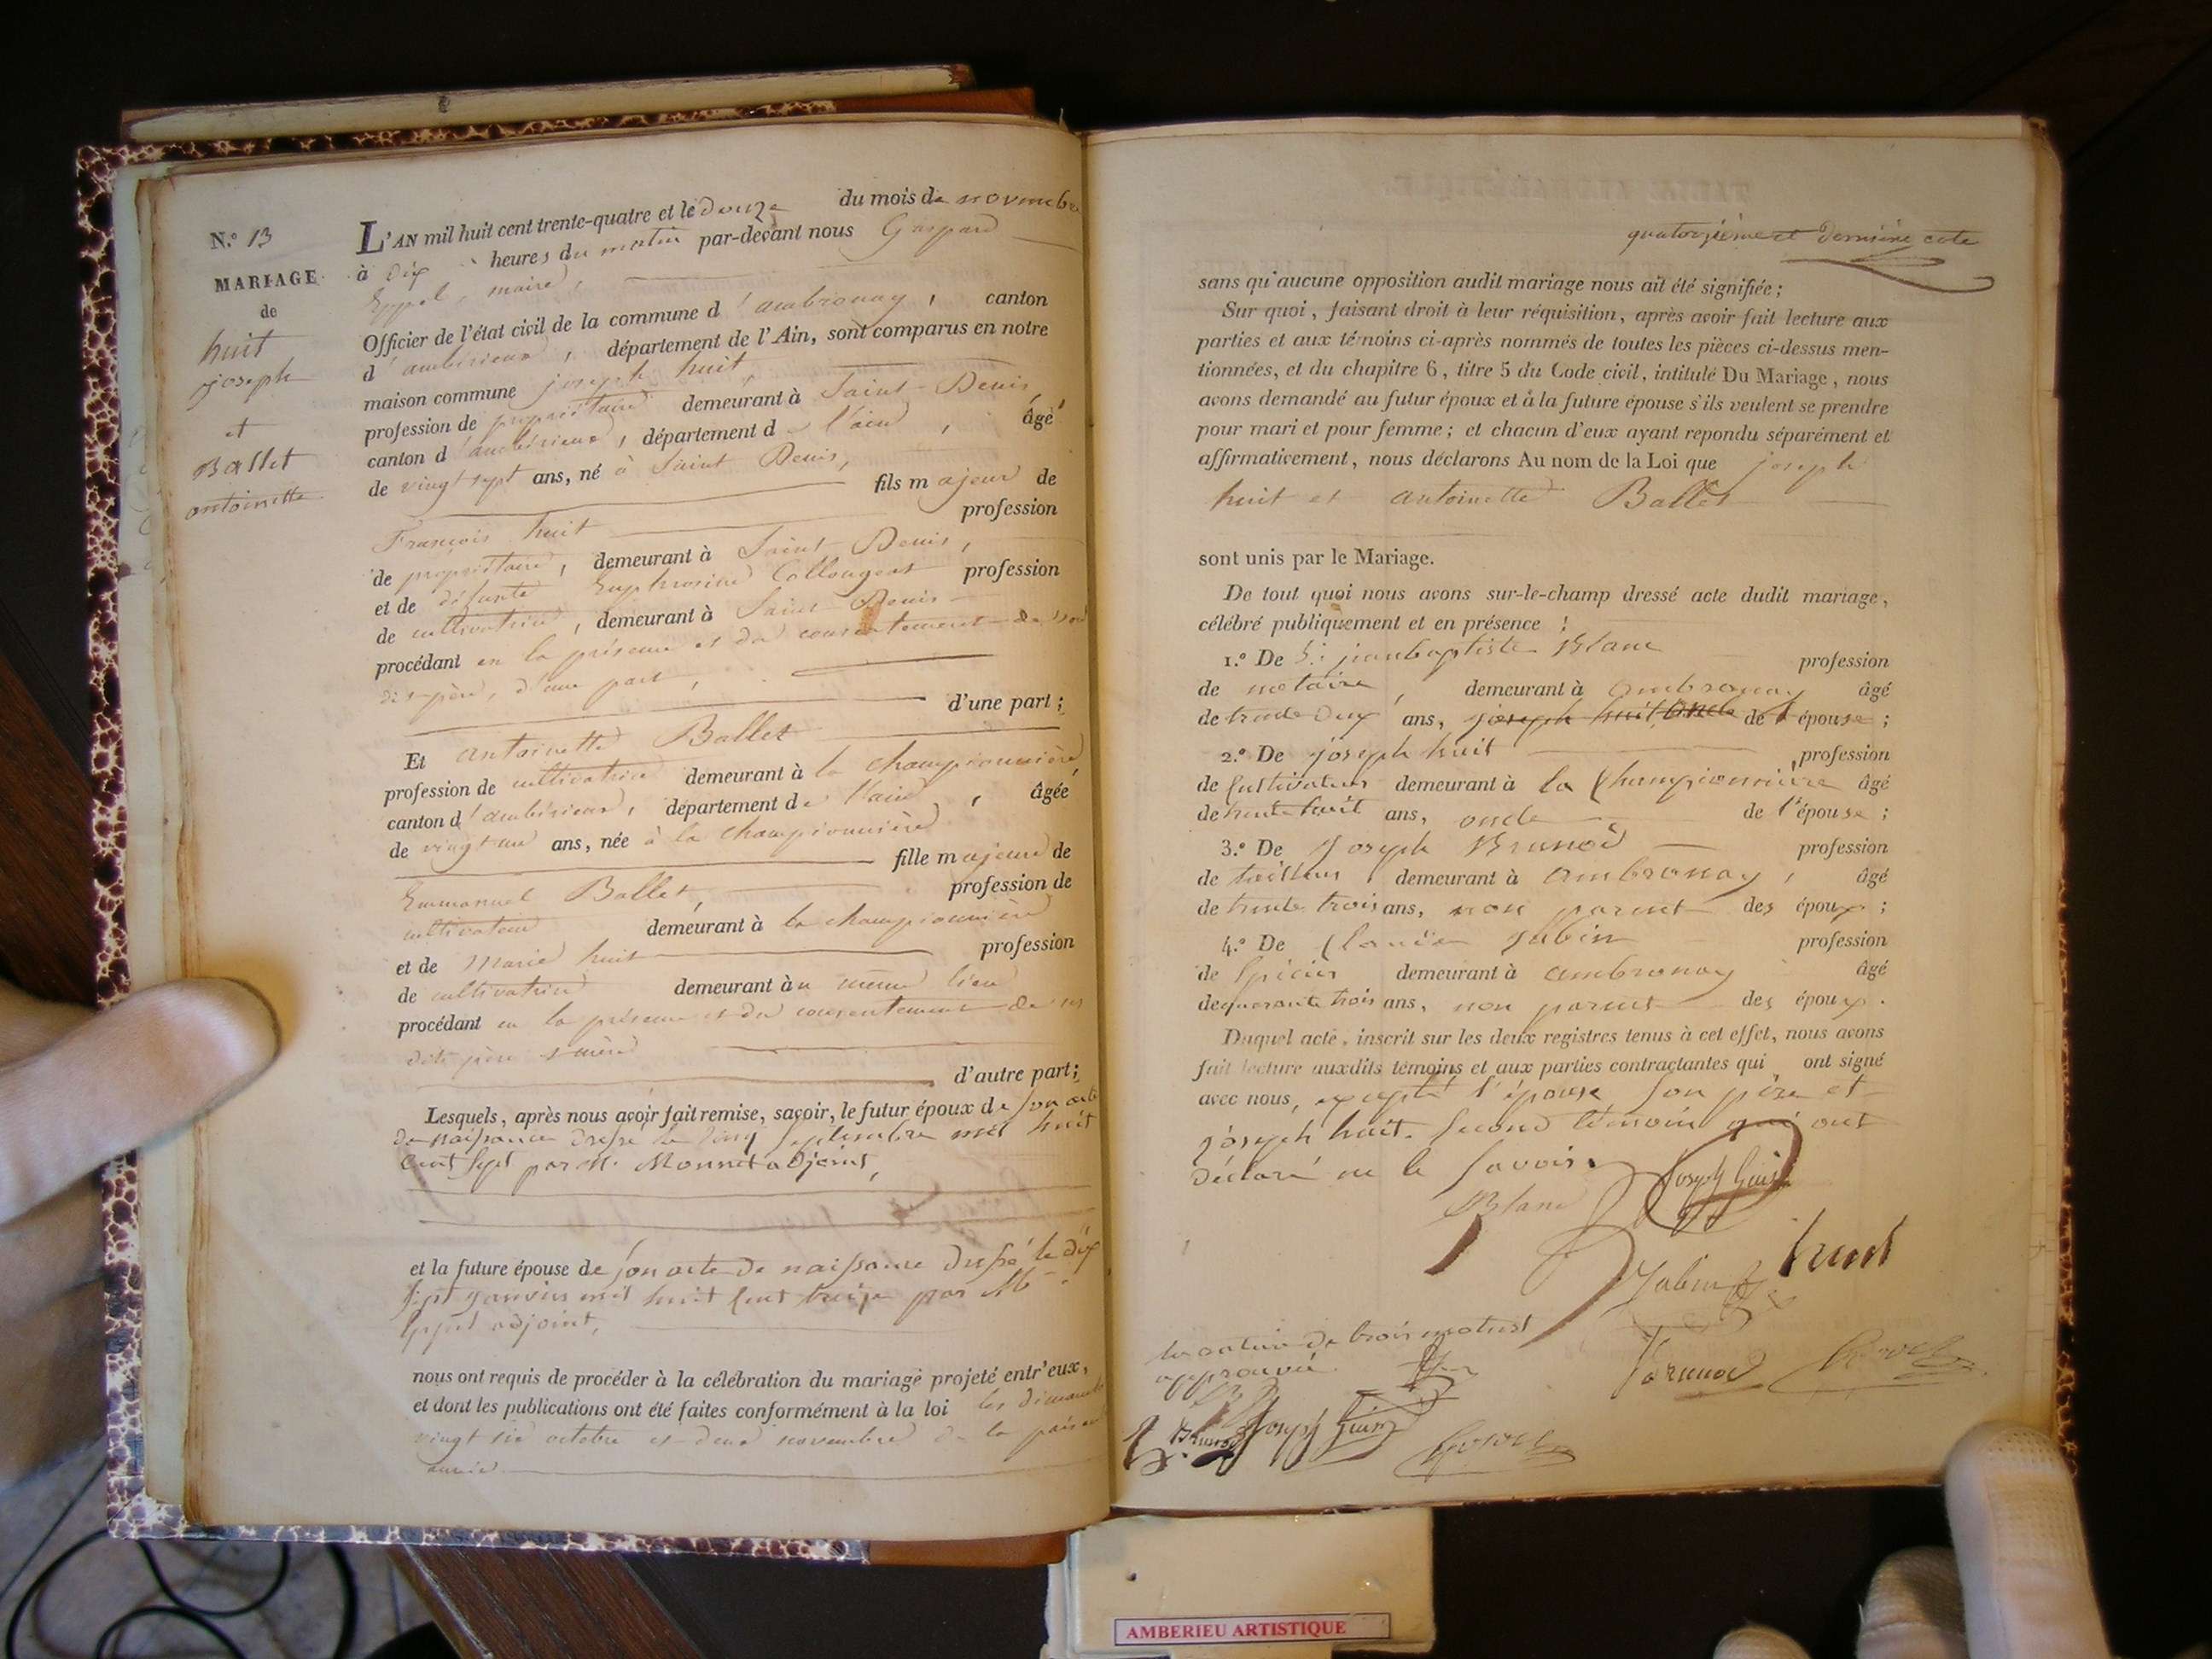 N.° 13
MARIAGE
de
huit
joseph
et
Ballet
antoinette
L'AN mil huit cent trente-quatre et le douze du mois de novembre
à dix heures du matin par-devant nous Gaspard
Eyppel, maire,
Officier de l'état civil de la commune d'ambronay, canton
d'ambérieux, département de l'Ain, sont comparus en notre
maison commune joseph huit,
profession de propriétaire demeurant à Saint-Denis,
canton d'ambérieux, département de l'ain, âgé
de vingt sept ans, né à Saint Denis,
fils majeur de
François huit profession
de propriétaire, demeurant à Saint-Denis,
et de défunte Euphrosine Collougeat profession
de cultivatrice, demeurant à Saint-Denis
procédant en la présence et du consentement de son
dit père, d'une part,
d'une part;
Et antoinette Ballet
profession de cultivatrice demeurant à la championnière
canton d'ambérieux, département de l'ain, âgée
de vingt un ans, née à la championnière
fille majeure de
Emmanuel Ballet, profession de
cultivateur demeurant à la championnière
et de Marie huit profession
de cultivatrice demeurant au même lieu
procédant en la présence et du consentement de ses
dits père et mère
d'autre part;
Lesquels, après nous avoir fait remise, savoir, le futur époux de son acte
de naissance dressé le cinq septembre mil huit
cent sept par M. Monnet adjoint,
et la future épouse de son acte de naissance dressé le dix
sept janvier mil huit cent treize par Mr
Eyppel adjoint,
nous ont requis de procéder à la célébration du mariage projeté entr'eux,
et dont les publications ont été faites conformément à la loi les dimanches
vingt six octobre et deux novembre de la présente
année
quatorzième et dernière cote
sans qu'aucune opposition audit mariage nous ait été signifiée;
Sur quoi, faisant droit à leur réquisition, après avoir fait lecture aux
parties et aux témoins ci-après nommés de toutes les pièces ci-dessus men-
tionnées, et du chapitre 6, titre 5 du Code civil, intitulé Du Mariage, nous
avons demandé au futur époux et à la future épouse s'ils veulent se prendre
pour mari et pour femme; et chacun d'eux ayant repondu séparément et
affirmativement, nous déclarons Au nom de la Loi que joseph
huit et antoinette Ballet
sont unis par le Mariage.
De tout quoi nous avons sur-le-champ dressé acte dudit mariage,
célébré publiquement et en présence :
1.° De S. jeanbaptiste Blanc profession
de notaire, demeurant à ambronay âgé
de trente deux ans, joseph huit oncle de l'épouse;
2.° De joseph huit profession
de Cultivateur demeurant à la Championnière âgé
de trente huit ans, oncle de l'épouse;
3.° De Joseph Brunod profession
de tailleur, demeurant à ambronay, âgé
de trente trois ans, non parent des époux;
4.° De Claude Jubin profession
de Epicier demeurant à ambronay âgé
de quarante trois ans, non parent des époux.
Duquel acte, inscrit sur les deux registres tenus à cet effet, nous avons
fait lecture auxdits témoins et aux parties contractantes qui ont signé
avec nous, excepté l'épouse son père et
joseph huit second témoin qui ont
déclaré ne le savoir.
Blanc
Jubin
huit
Brunod
la rature de trois mots est
approuvée
Brunod